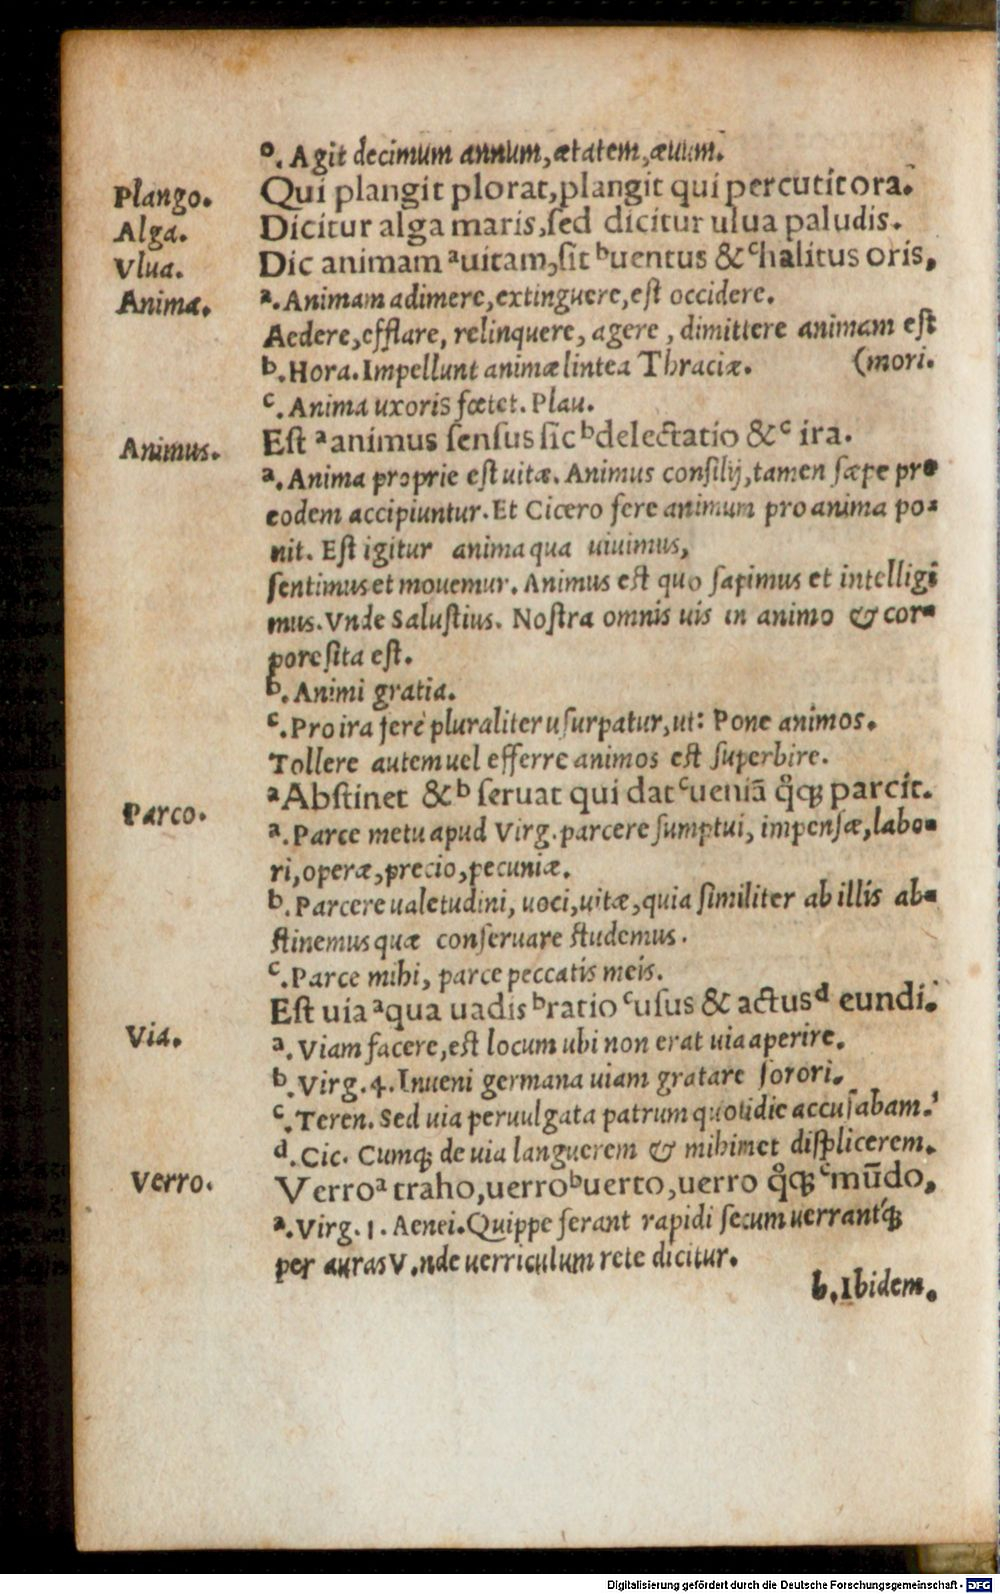 o. Agit decimum annum, ætatem, æuum.
Plango. Qui plangit plorat, plangit qui percutit ora.
Alga. Dicitur alga maris, sed dicitur ulua paludis.
Vlua. Dic animam ᵃuitam, sit ᵇuentus & ᶜhalitus oris,
Anima. a. Animam adimere, extinguere, est occidere.
Aedere, efflare, relinquere, agere, dimittere animam est
b. Hora. Impellunt animæ lintea Thraciæ. (mori.
c. Anima uxoris fœtet. Plau.
Animus. Est ᵃanimus sensus sic ᵇdelectatio &ᶜ ira.
a. Anima proprie est uitæ. Animus consilij, tamen sæpe pro
eodem accipiuntur. Et Cicero fere animum pro anima po-
nit. Est igitur anima qua uiuimus,
sentimus et mouemur. Animus est quo sapimus et intelligi
mus. Vnde Salustius. Nostra omnis uis in animo & cor-
pore sita est.
b. Animi gratia.
c. Pro ira fere pluraliter usurpatur, ut: Pone animos.
Tollere autem uel efferre animos est superbire.
Parco. ᵃAbstinet &ᵇ seruat qui dat ᶜueniā q̊q́ꝫ parcit.
a. Parce metu apud Virg. parcere sumptui, impensæ, labo-
ri, operæ, precio, pecuniæ.
b. Parcere ualetudini, uoci, uitæ, quia similiter ab illis ab-
stinemus quæ conseruare studemus.
c. Parce mihi, parce peccatis meis.
Est uia ᵃqua uadis ᵇratio ᶜusus & actusᵈ eundi.
Via. a. Viam facere, est locum ubi non erat uia aperire.
b. Virg. 4. Inueni germana uiam gratare sorori.
c. Teren. Sed uia peruulgata patrum quotidie accusabam.
d. Cic. Cumqꝫ de uia languerem & mihimet displicerem.
Verro. Verroᵃ traho, uerroᵇ uerto, uerro q̊q́ꝫ ᶜmūdo,
a. Virg. 1. Aenei. Quippe ferant rapidi secum uerrantq́ꝫ
per auras V.nde uerriculum rete dicitur.
b. Ibidem.
Digitalisierung gefördert durch die Deutsche Forschungsgemeinschaft - DFG